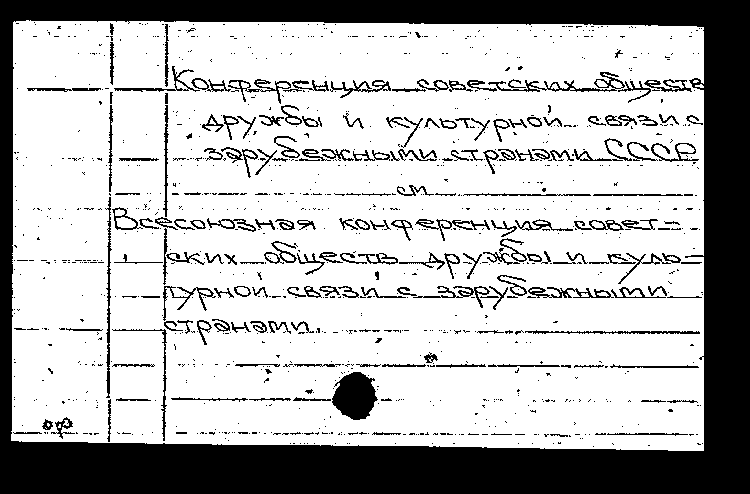 Конференция советских обществ
дружбы и культурной связи с
зарубежными странами СССР
см
Всесоюзная конференция совет-
ских обществ дружбы и куль-
турной связи с зарубежными
странами.